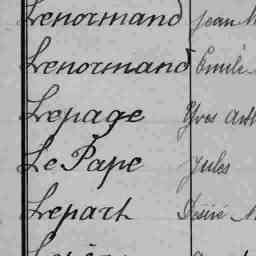 Lenormand Jean M
Lenormand Emile
Lepage Yves
Le Pape Jules
Lepart Désiré M